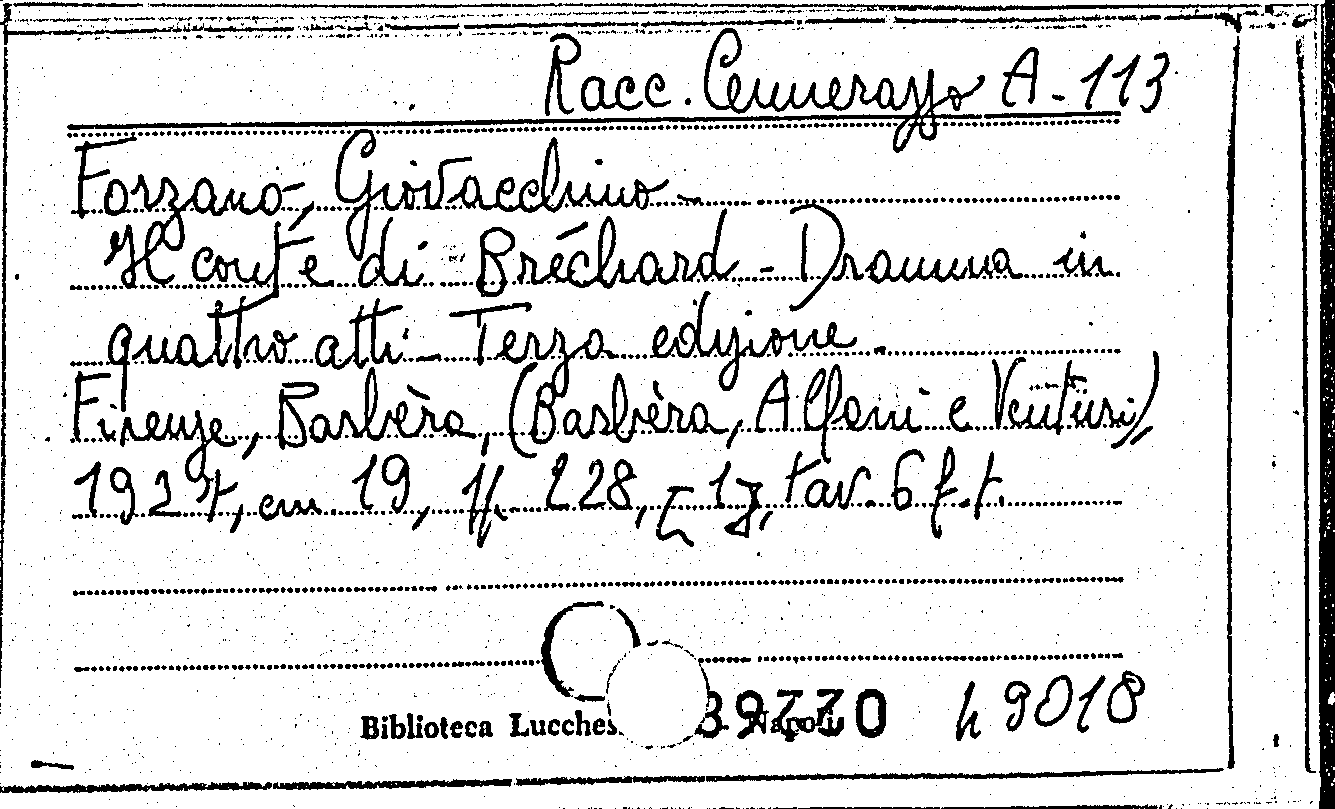 Racc. Cennerazzo A-113
Forzano, Giovacchino -
Il conte di Bréchard - Dramma in
quattro atti - Terza edizione.
Firenze, Barbèra, (Barbèra, Alfani e Venturi),
1924, cm. 19, pp. 228, [1], tav. 6 f.t.
Biblioteca Lucches. 39770 Napoli h 9018